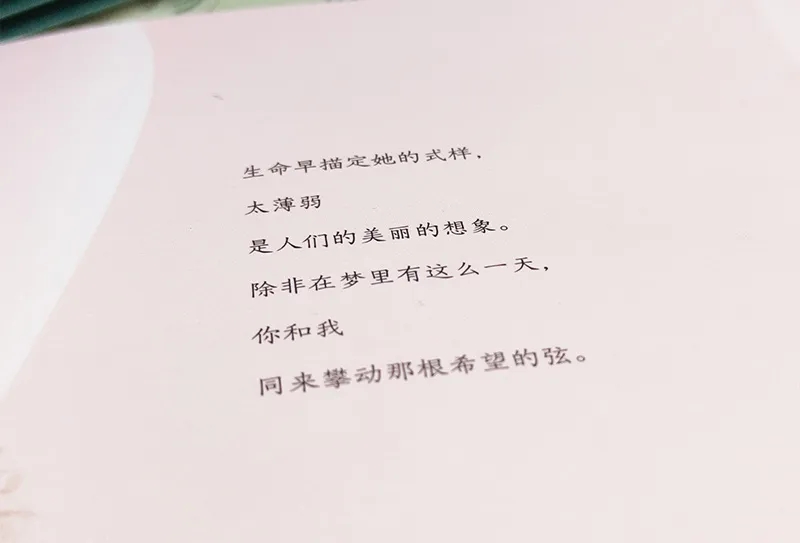 生命早描定她的式样，
太薄弱
是人们的美丽的想象。
除非在梦里有这么一天，
你和我
同来攀动那根希望的弦。